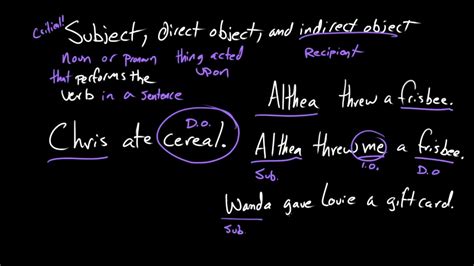 Critical!
Subject, direct object, and indirect object
noun or pronoun thing acted Recipient
that performs the upon
verb in a sentence
Althea threw a frisbee.
D.O.
Chris ate cereal.
Althea threw me a frisbee.
Sub. I.O. D.O
Wanda gave Louie a giftcard.
Sub.